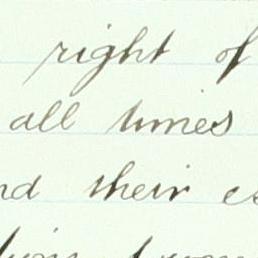 right of
all times
nd their es